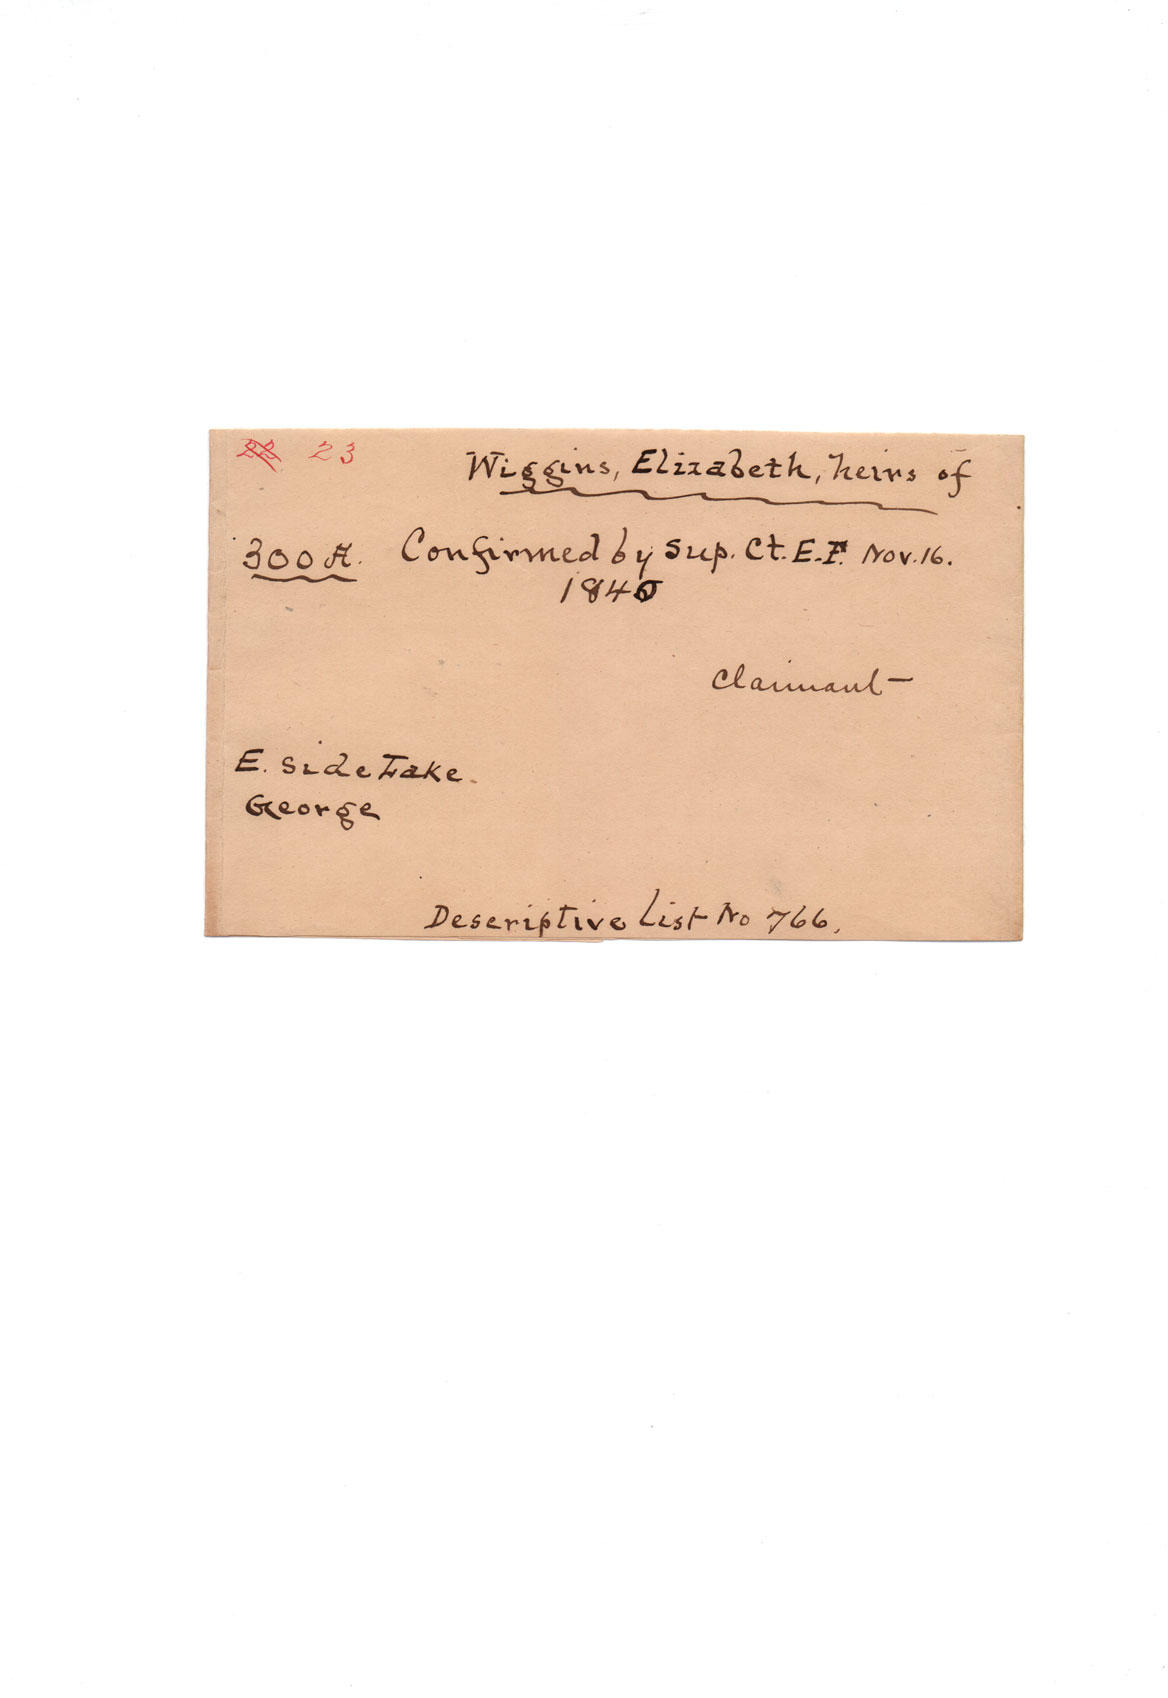 22 23
Wiggins, Elizabeth, heirs of
300 A. Confirmed by Sup. Ct. E.F. Nov. 16.
1840
Claimant—
E. side Lake
George
Descriptive List No 766.